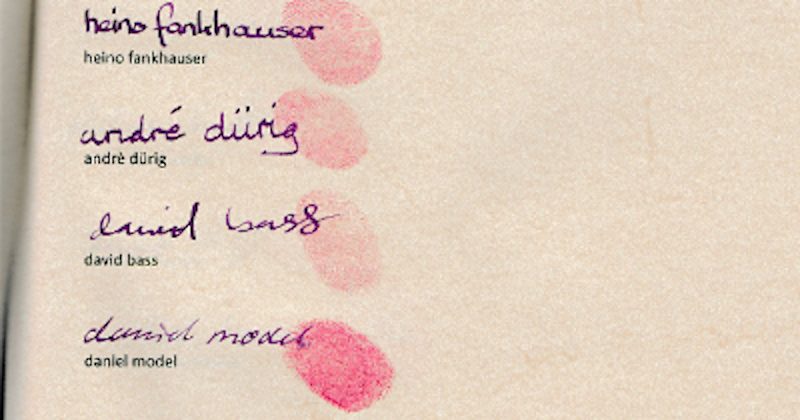 heino fankhauser
heino fankhauser
andré dürig
andrè dürig
david bass
david bass
daniel model
daniel model